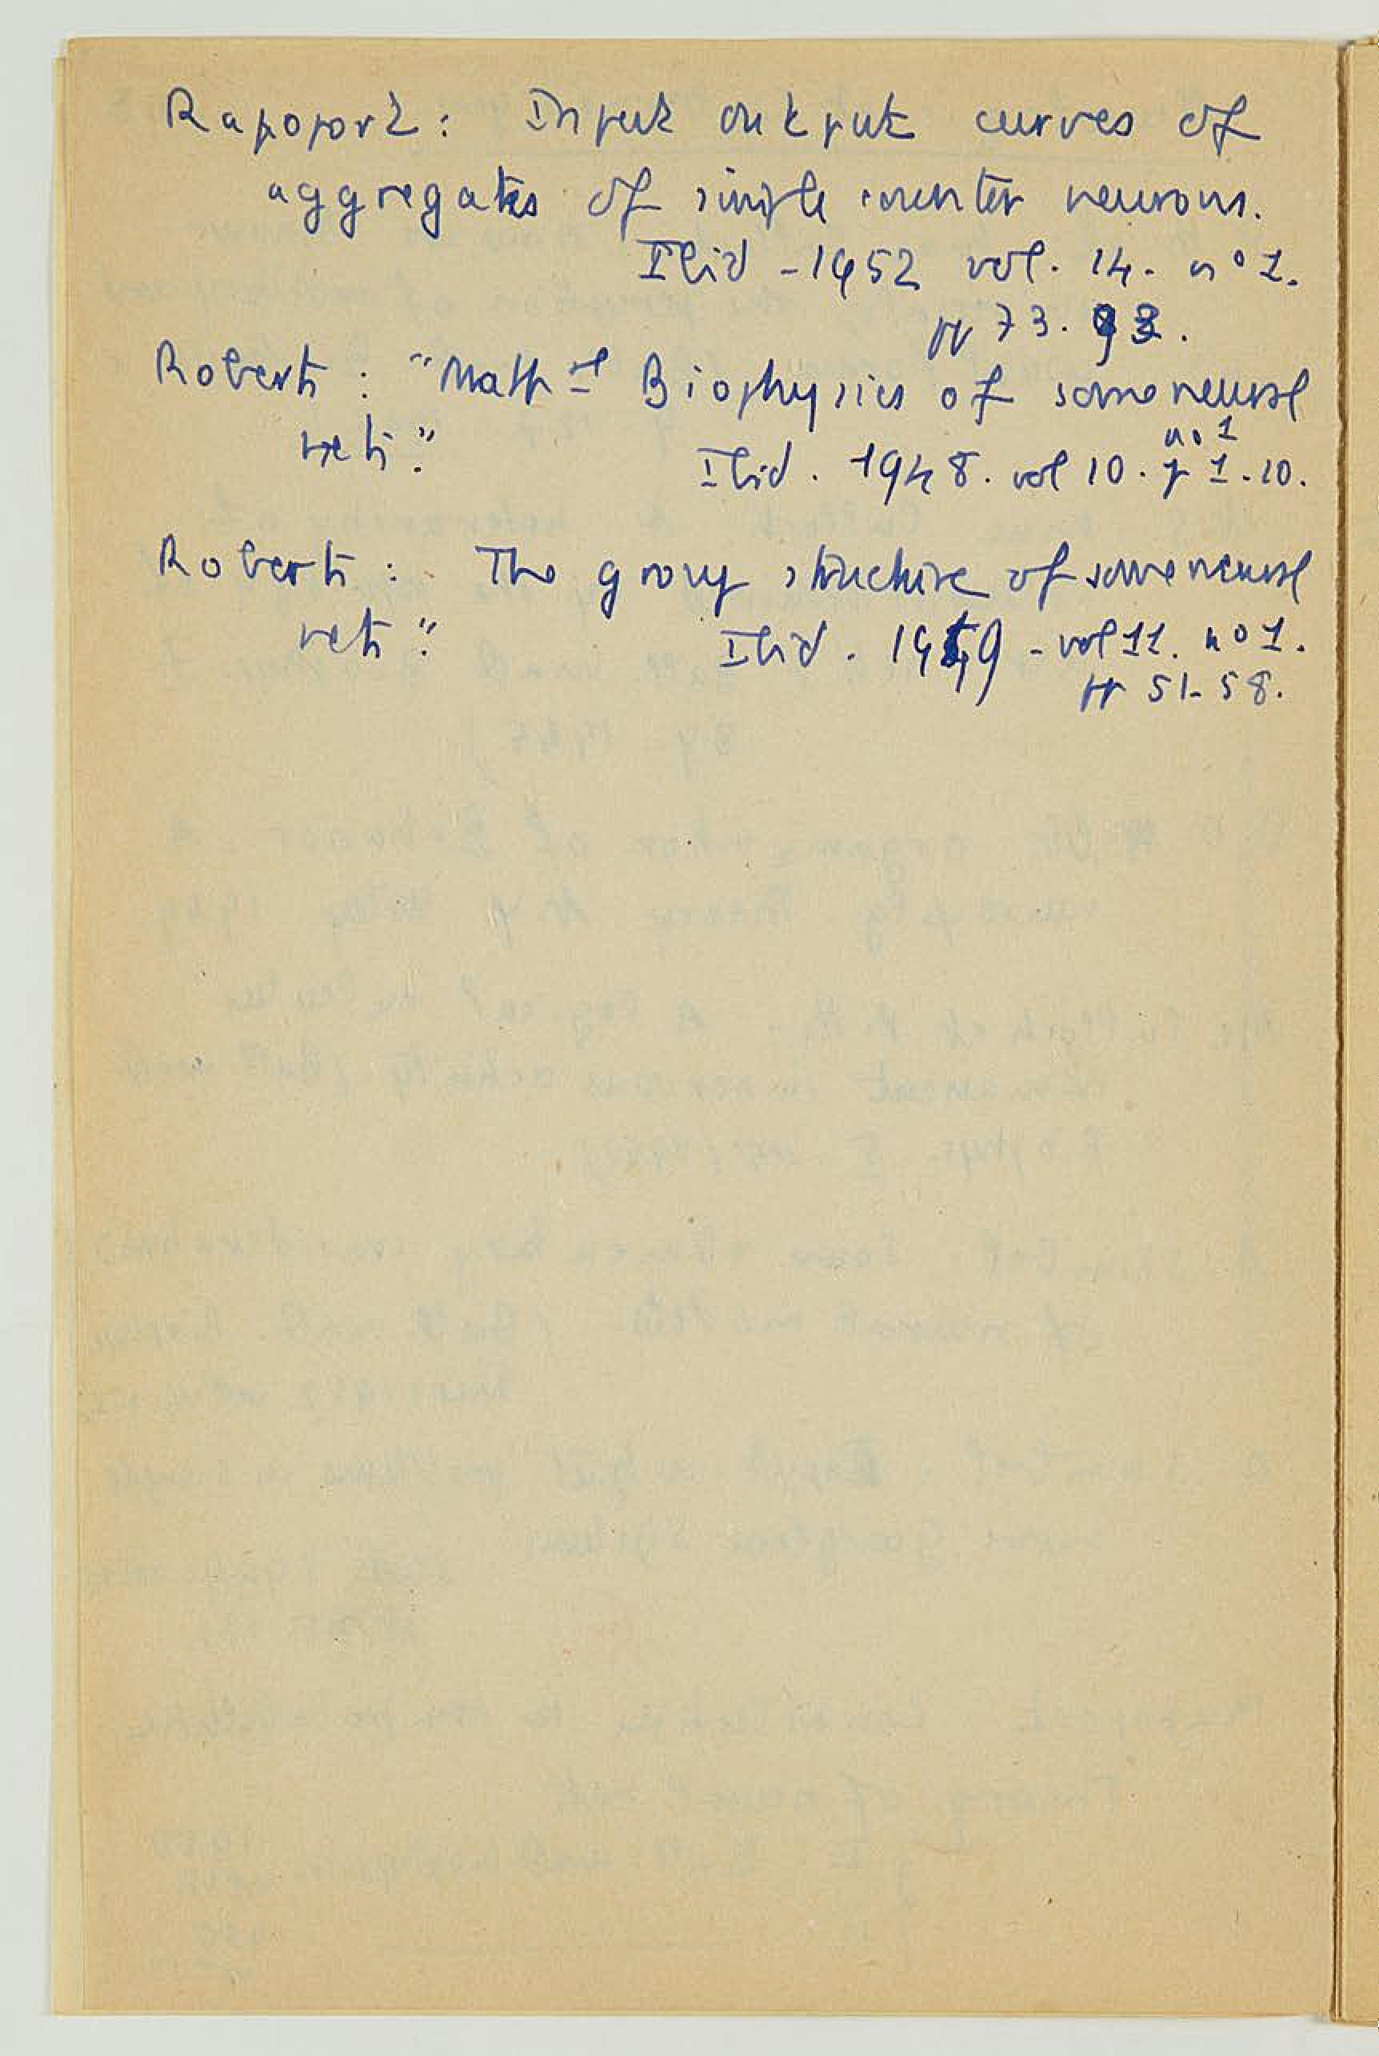 Rapoport: Input output curves of
aggregates of simple counter neurons.
Ibid - 1952 vol. 14. n° 1.
pp 73.
Roberts : "Math al Biophysics of some neural
nets." Ibid. 1948. vol 10. no 1 p 1-10.
Roberts : The group structure of some neural
nets" Ibid. 1949 - vol 11. no 1.
pp 51-58.